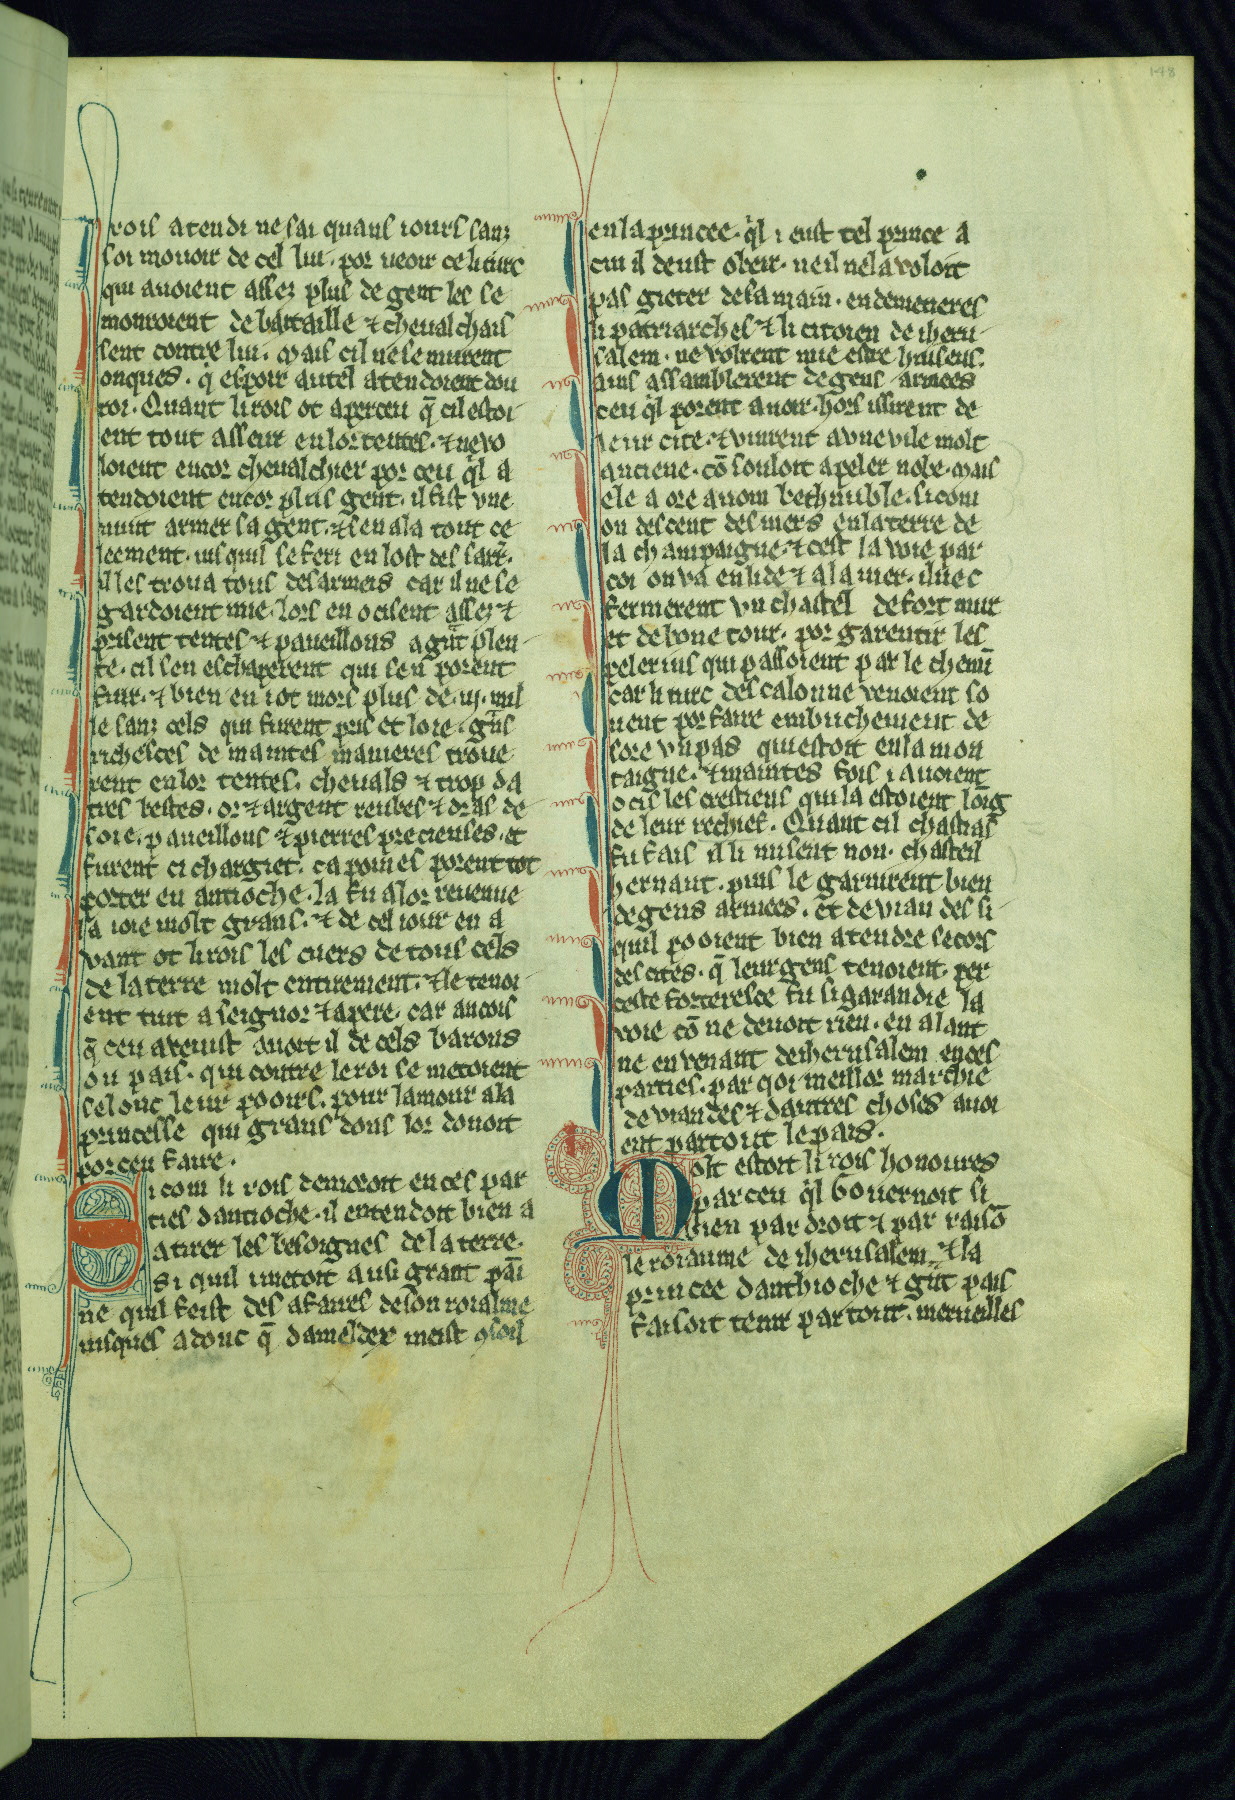 rois atendi ne sai quans iours sanz
soi mouoir de cel liu. por ueoir ce li turc
qui auoient assez plus de gent les se
monroient de battaille ⁊ cheualchais
sent contre lui. mais cil ne se murent
onques. q̄ espoir autel atendoient dou
roi. Quant li rois ot aperceu q̄ cil estoi
ent tout asseur en lor tentes. ⁊ ne vo
loient encor cheualchier por ceu q̓l a
tendoient encor plus gent. il fist vne
nuit armer sa gent. ⁊ sen ala tout ce
leement. iusquil se feri en lost des sarr̄.
il les troua tous desarmeis car il ne se
gardoient mie. lors en ocisent assez ⁊
prisent tentes ⁊ paueillons a gūt plen
te. cil sen eschaperent qui sen porent
fuir. ⁊ bien en i ot mors plus de .iij. mil
le sanz cels qui furent pris et loie. gn̄s
richesces de maintes manieres troue
rent en lor tentes. cheuals ⁊ trop da
tres bestes. or ⁊ argent reubes ⁊ dras de
soie. paueillons ⁊ pierres precieuses. et
furent ci chargiet. ca poines porent tot
porter en antioche. la fu a lor reuenue
la ioie molt grans. ⁊ de cel iour en a
vant ot li rois les cuers de tous cels
de la terre molt entirement. ⁊ le tenoi
ent tuit a seignor ⁊ a pere. car ancois
q̄ ceu auenist auoit il de cels barons
ou pais. qui contre le roi se metoient
selonc leur pooirs. pour lamour a la
princesse qui grans dons lor donoit
por ceu faire.
Si com li rois demoroit en ces par
ties dantioche. il entendoit bien a
atirer les besoignes de la terre.
si quil i metoit ausi grant pāi
ne quil feist des afaires de son roialme
iusques adonc q̄ dameldex meist ꝯsoil
en la princee. q̓l i eust tel prince a
cui il deust obeir. ne il ne la voloit
pas gieter de sa main. endemetieres
li patriarches ⁊ li citoien de iheru
salem. ne volrent mie estre huiseus.
ains assamblerent de gens armees
ceu q̓l porent auoir. hors issirent de
leur cite. ⁊ vinrent a vne vile molt
anciene. cō souloit apeler nobe. mais
ele a ore anom bethnuble. si com
on descent des mers en la terre de
la champaigne. ⁊ cest la voie par
coi on va en lide ⁊ a la mer. iluec
fermerent vn chastel de fort mur
et de bone tour. por garentir les
pelerins qui passoient par le chemī
car li turc descalonne venoient so
uent por faire embuchement de
sore vn pas qui estoit en la mon
taigne. ⁊ maintes fois i auoient
ocis les crestiens qui la estoient loīg
de leur rechief. Quant cil chastias
fu fais il li misent non. chasteil
hernaut. puis le garnirent bien
de gens armees. et de vian des si
quil pooient bien atendre secors
des cites. q̄ leur gens tenoient. per
ceste forteresce fu si garandie la
voie cō ne denoit rien. en alant
ne en venant de iherusalem en ces
parties. par qoi meillor marchie
de viandes ⁊ dautres choses auoi
ent partout le pais.
Molt estoit li rois honoures
par ceu q̓l Gouernoit si
bien par droit ⁊ par raisō
le roiaume de iherusalem. ⁊ la
princee danthioche ⁊ gūt pais
faisoit tenir partout. merueilles
148